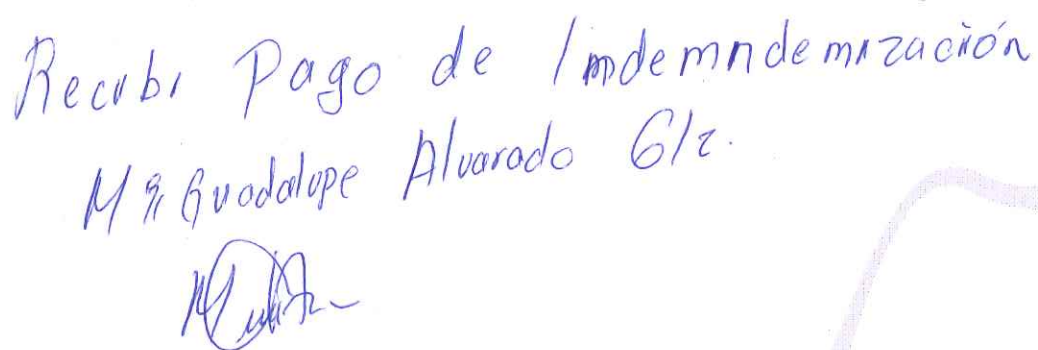 Recibi Pago de Imdemndemnización
Mª Guadalupe Alvarado Glz.